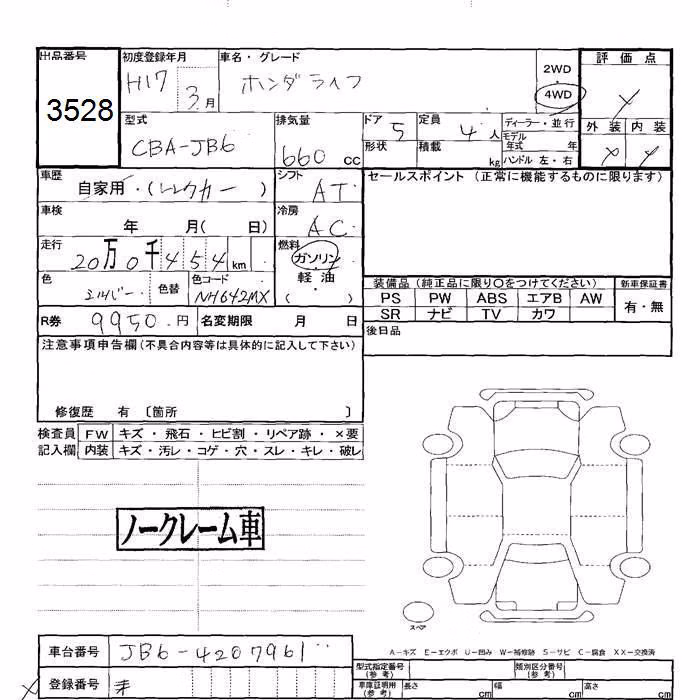 出品番号 初度登録年月 車名・グレード 評価点
3528 H17 3月 ホンダライフ 2WD
4WD
外装 内装
型式 排気量 ドア 定員 ディーラー・並行
CBA-JB6 660 cc 5 4人 モデル年式 年
形状 積載 kg ハンドル 左・右
車歴 シフト セールスポイント (正常に機能するものに限ります)
自家用・(レンタカー) AT
車検 冷房
年 月( 日) AC
走行 燃料
20万0千454km ガソリン・軽油・( )
色 色替 色コード 装備品 (純正品に限り○をつけてください) 新車保証書
シルバー NH642MX PS PW ABS エアB AW 有・無
SR ナビ TV カワ
R券 9950.円 名変期限 月 日 後日品
注意事項申告欄(不具合内容等は具体的に記入して下さい)
修復歴 有 〔箇所 〕
検査員 FW キズ・飛石・ヒビ割・リペア跡・×要
記入欄 内装 キズ・汚レ・コゲ・穴・スレ・キレ・破レ
ノークレーム車
スペア
A-キズ E-エクボ U-凹み W-補修跡 S-サビ C-腐食 XX-交換済
車台番号 JB6-4207961
型式指定番号(参考) 類別区分番号(参考)
登録番号
車庫証明用(参考) 長さ cm 幅 cm 高さ cm